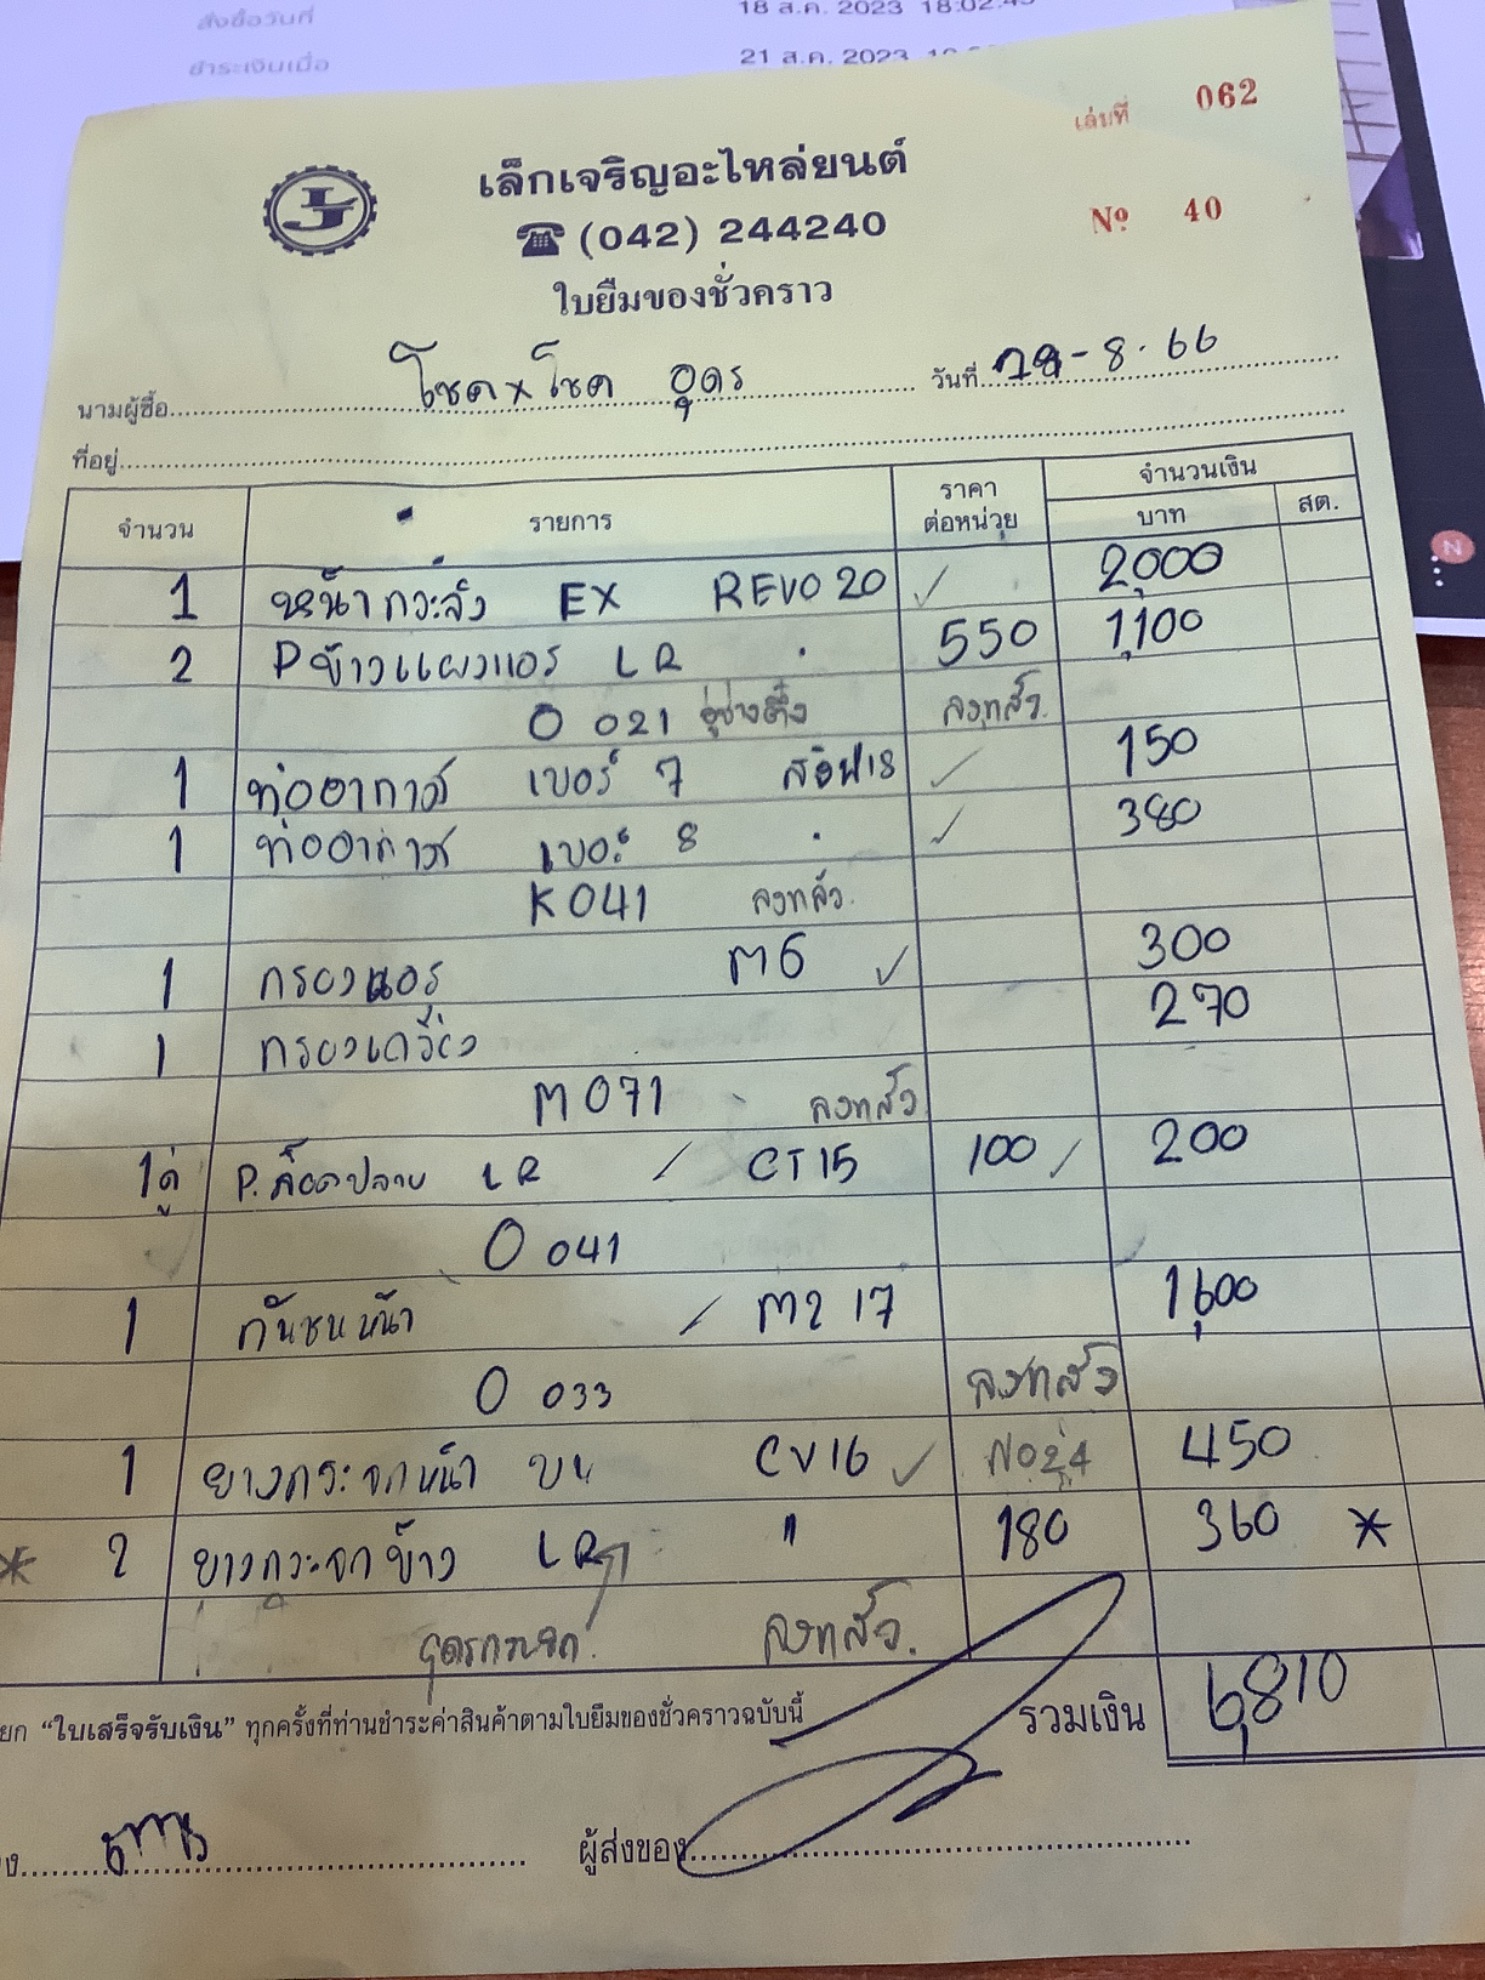 สั่งซื้อวันที่ 18 ส.ค. 2023 18:02:45
ชำระเงินเมื่อ 21 ส.ค. 2023
เล่มที่ 062
เล็กเจริญอะไหล่ยนต์
(042) 244240
Nº 40
ใบยืมของชั่วคราว
นามผู้ซื้อ โชคxโชค อุดร วันที่ -8.66
ที่อยู่
จำนวน รายการ ราคาต่อหน่วย จำนวนเงิน บาท สต.
1 หน้ากระจัง EX REVO 20 ✓ 2,000
2 Pข้างแผงแอร์ LR 550 1,100
O 021 อู่ช่างตึ๋ง ลงแล้ว
1 ท่ออากาศ เบอร์ 7 ✓ 150
1 ท่ออากาศ เบอร์ 8 ✓ 380
K041 ลงแล้ว
1 กรองแอร์ M6 ✓ 300
1 กรองเครื่อง 270
M071 ลงแล้ว
1คู่ P.ล็อคปลาย LR / CT15 100 ✓ 200
O 041
1 กันชนหน้า / M2 17 1,600
O 033 ลงแล้ว
1 ยางกระจกหน้า บน CV16 ✓ 450
* 2 ยางกระจกข้าง LR " 180 360 *
ลงแล้ว.
“ใบเสร็จรับเงิน” ทุกครั้งที่ท่านชำระค่าสินค้าตามใบยืมของชั่วคราวฉบับนี้ รวมเงิน 6,810
ผู้ส่งของ